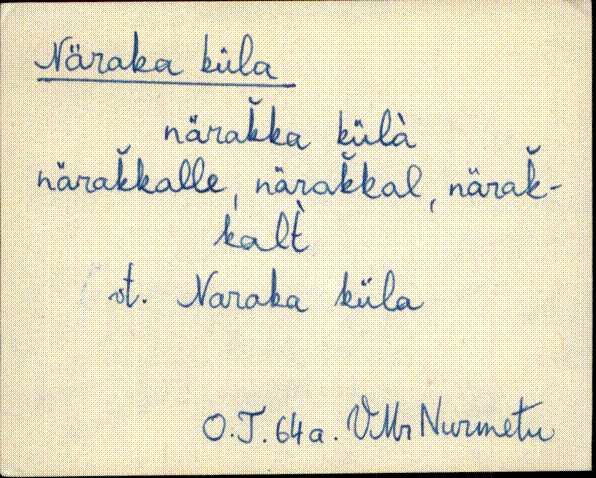 Näraka küla
närak̆ka külà
närak̆kalle, närak̆kal, närak̆-
kalt̀
vt. Naraka küla
O.T. 64a. VMr Nurmetu